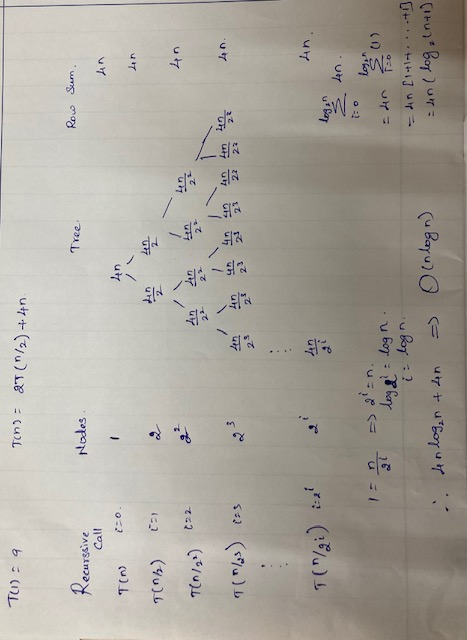 T(1) = 9 T(n) = 2T(n/2) + 4n
Recurssive Call Nodes. Tree Row Sum.
T(n) i=0. 1 4n 4n
T(n/2) i=1 2 4n/2 4n/2 4n
T(n/2²) i=2 2² 4n/2² 4n/2² 4n/2² 4n/2² 4n
T(n/2³) i=3 2³ 4n/2³ 4n/2³ 4n/2³ 4n/2³ 4n/2³ 4n/2² 4n/2³ 4n/2³ 4n.
⋮ ⋮
T(n/2i) i=2^i 2^i 4n/2^i 4n.
1 = n/2^i => 2^i = n.
log2^i = log n.
i = log n.
∑_{i=0}^{log₂n} 4n.
= 4n ∑_{i=0}^{log₂n} (1)
= 4n [1+1+.....+1]
= 4n (log₂(n+1)
∴ 4n log₂n + 4n => O(n log n)